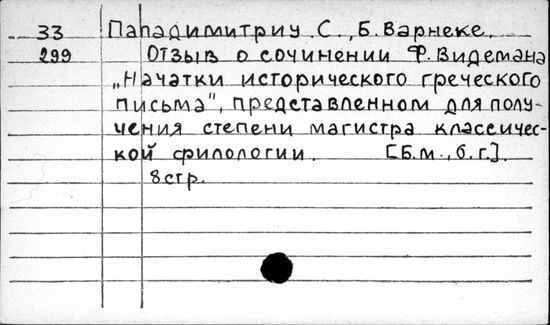 33 Пападимитриу С., Б. Варнеке.
299 Отзыв о сочинении Ф. Видемана
„Начатки исторического греческого
письма", представленном для полу-
чения степени магистра классичес-
кой филологии. [Б.м., б.г.].
8 стр.